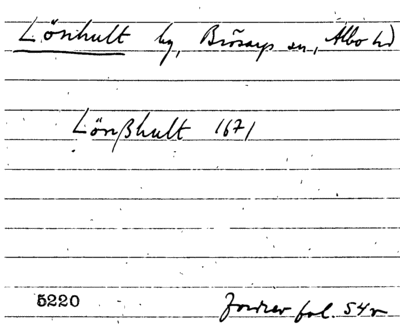 Lönhult by, Brösarps sn, Albo hd
Lönßhult 1671
5220
Jordrev fol. 54v